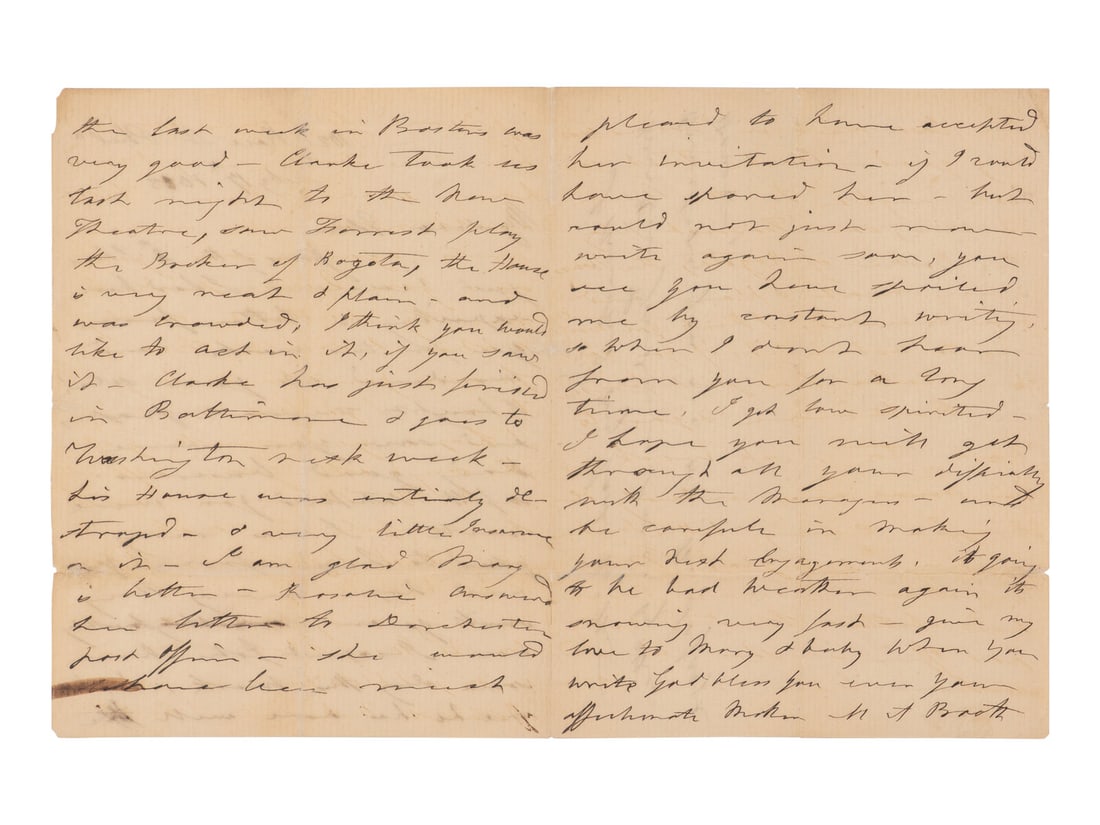 the last week in Boston was
very good – Clarke took us
last night to the New
Theatre, saw Forrest play
the Broker of Bogota, the House
is very neat & plain – and
was crowded, I think you would
like to act in it, if you saw
it – Clarke has just finished
in Baltimore & goes to
Washington next week –
his House was entirely de-
stroyd – & very little Insurance
on it – I am glad Mary
is better – Rosalie answered
her letter to Dorchester
post office – she would
have been much
pleased to have accepted
her invitation – if I could
have spared her – but
could not just now
write again soon, you
see you have spoiled
me by constant writing,
so when I dont hear
from you for a long
time, I get low spirited –
I hope you will get
through all your difficulty
with the Managers – and
be careful in making
your next Engagements. it going
to be bad weather again its
snowing very fast – give my
love to Mary & baby when you
write God bless you ever your
affectionate Mother M A Booth